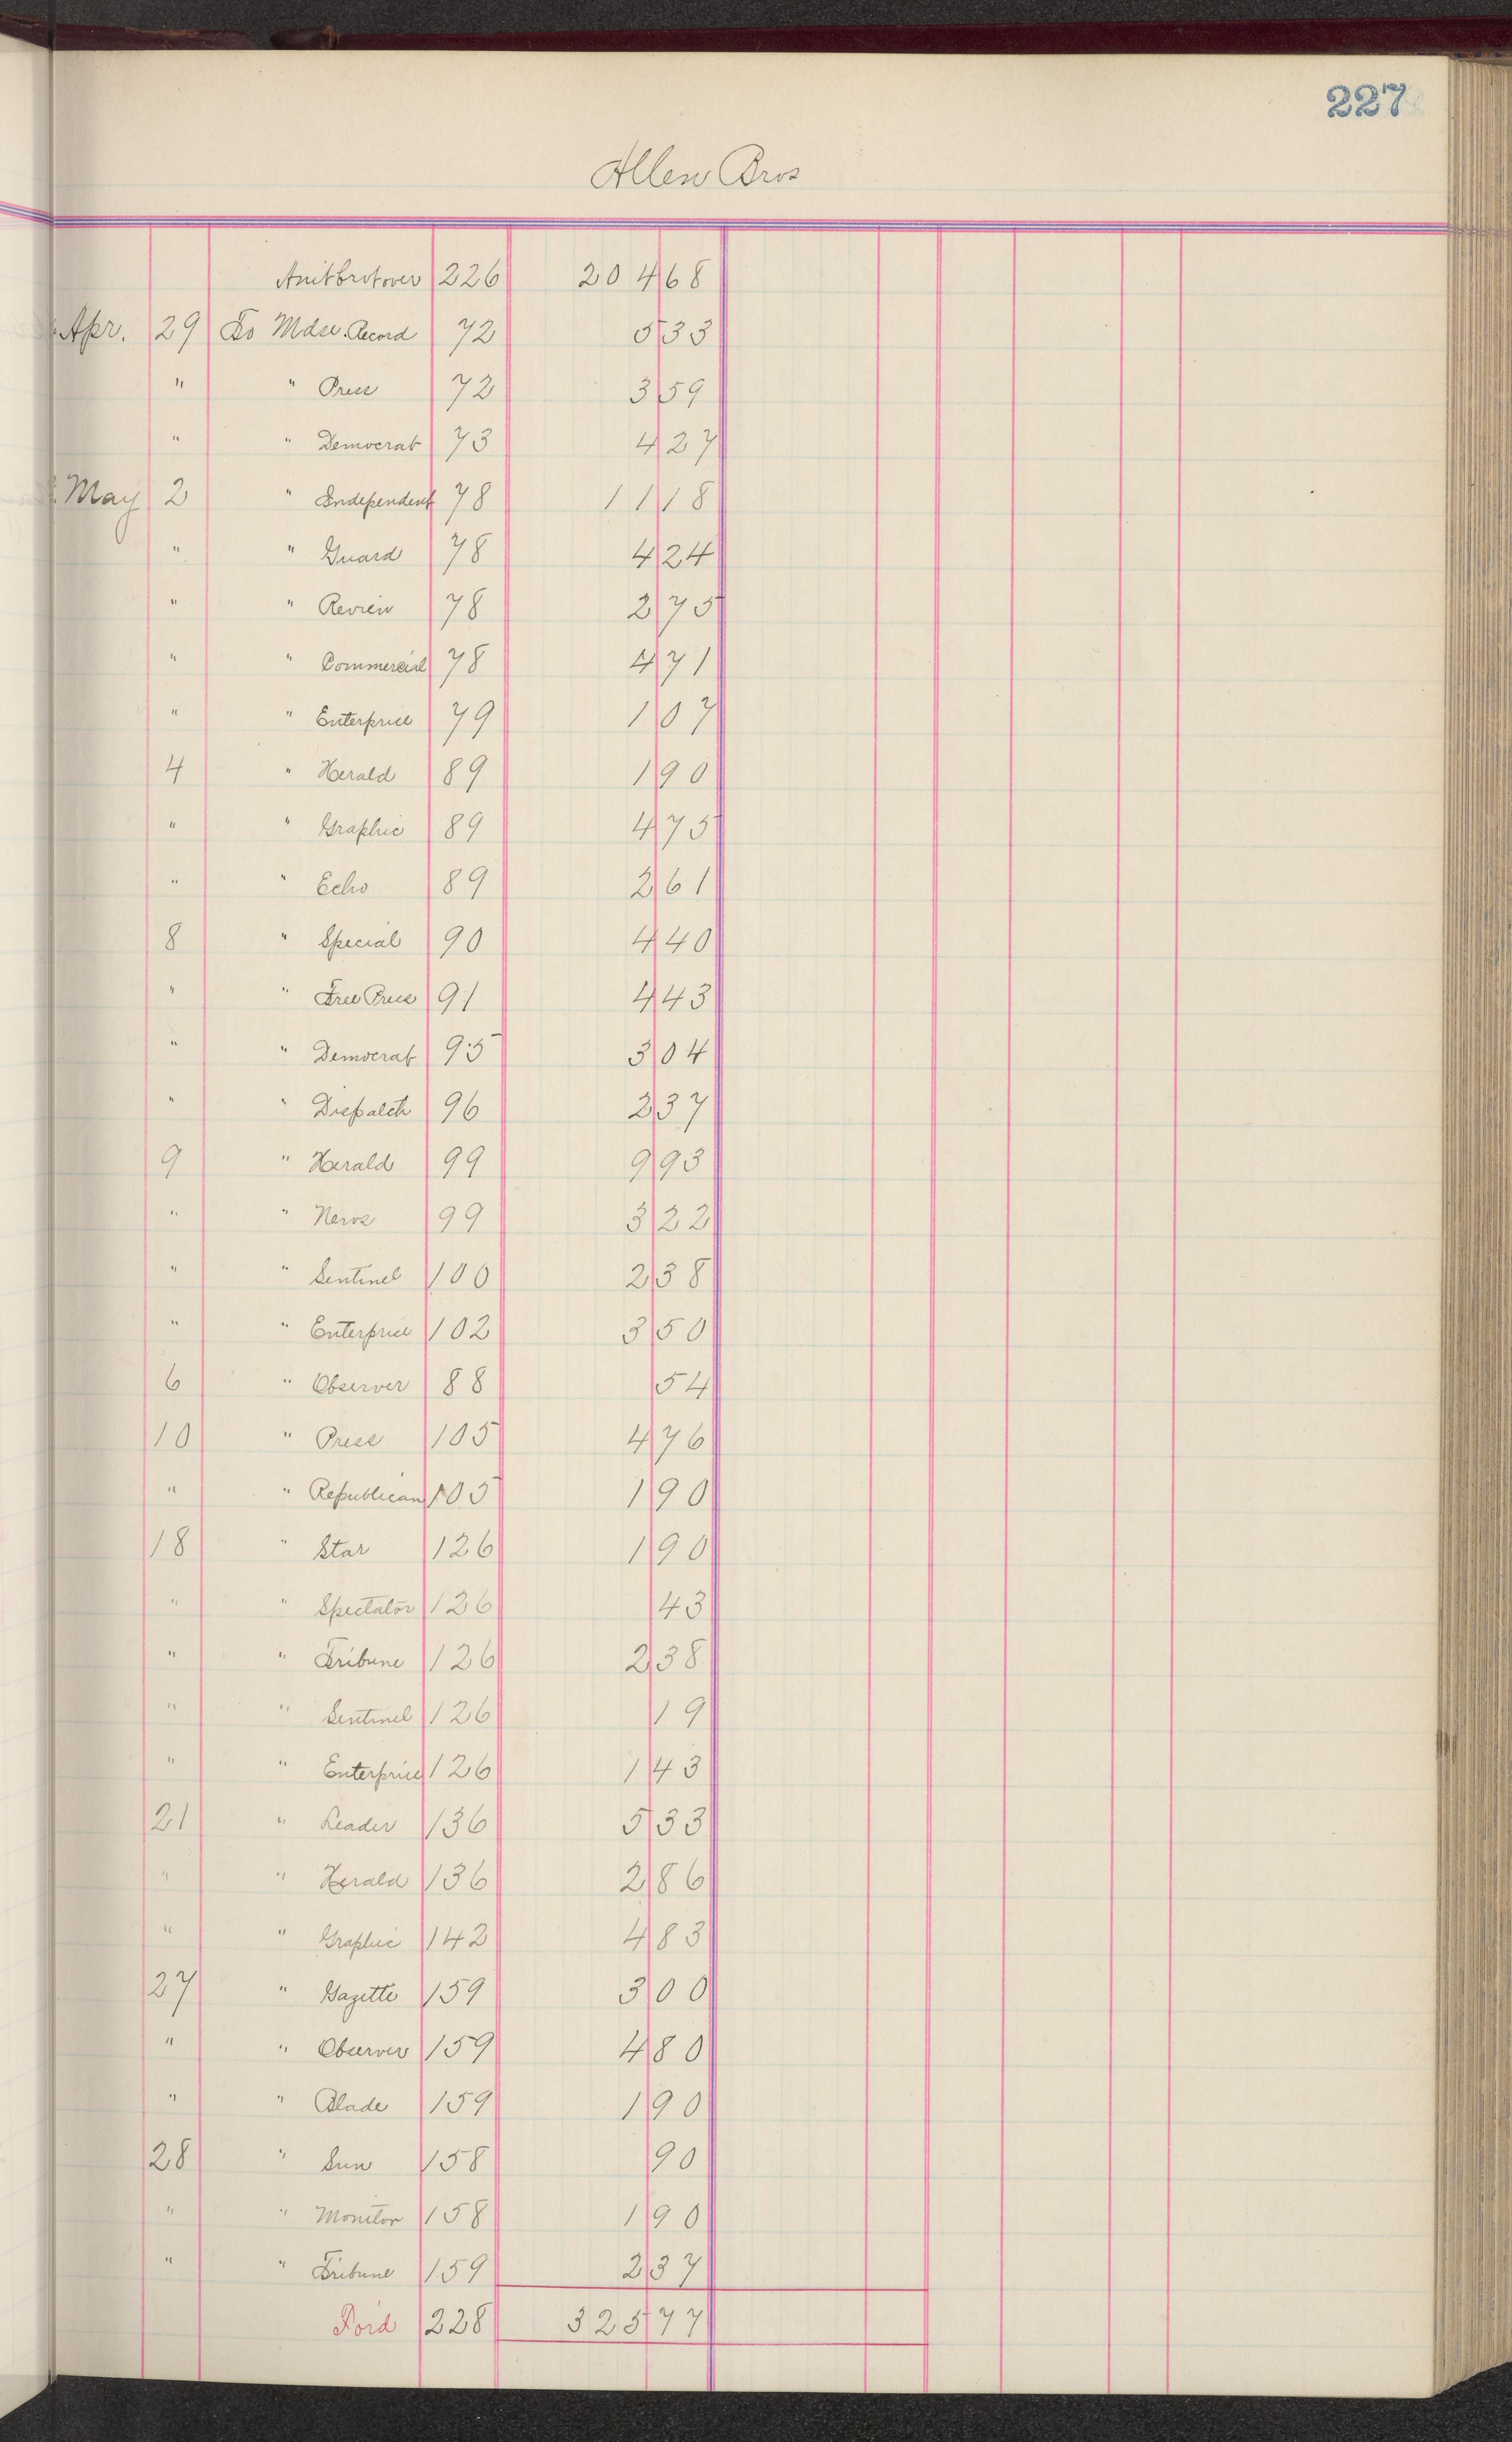 227
Allen Bros
Amt brot over 226 204 68
Apr. 29 To Mdse. Record 72 5 33
" " Press 72 3 59
" " Democrat 73 4 27
May 2 " Independent 78 11 18
" " Guard 78 4 24
" " Review 78 2 75
" " Commercial 78 4 71
" " Enterprise 79 1 07
4 " Herald 89 1 90
" " Graphic 89 4 75
" " Echo 89 2 61
8 " Special 90 4 40
" " Free Press 91 4 43
" " Democrat 95 3 04
" " Dispatch 96 2 37
9 " Herald 99 9 93
" " News 99 3 22
" " Sentinel 100 2 38
" " Enterprise 102 3 50
6 " Observer 88 54
10 " Press 105 4 76
" " Republican 105 1 90
18 " Star 126 1 90
" " Spectator 126 43
" " Tribune 126 2 38
" " Sentinel 126 19
" " Enterprise 126 1 43
21 " Leader 136 5 33
" " Herald 136 2 86
" " Graphic 142 4 83
27 " Gazette 159 3 00
" " Observer 159 4 80
" " Blade 159 1 90
28 " Sun 158 90
" " Monitor 158 1 90
" " Tribune 159 2 37
Ford 228 325 77